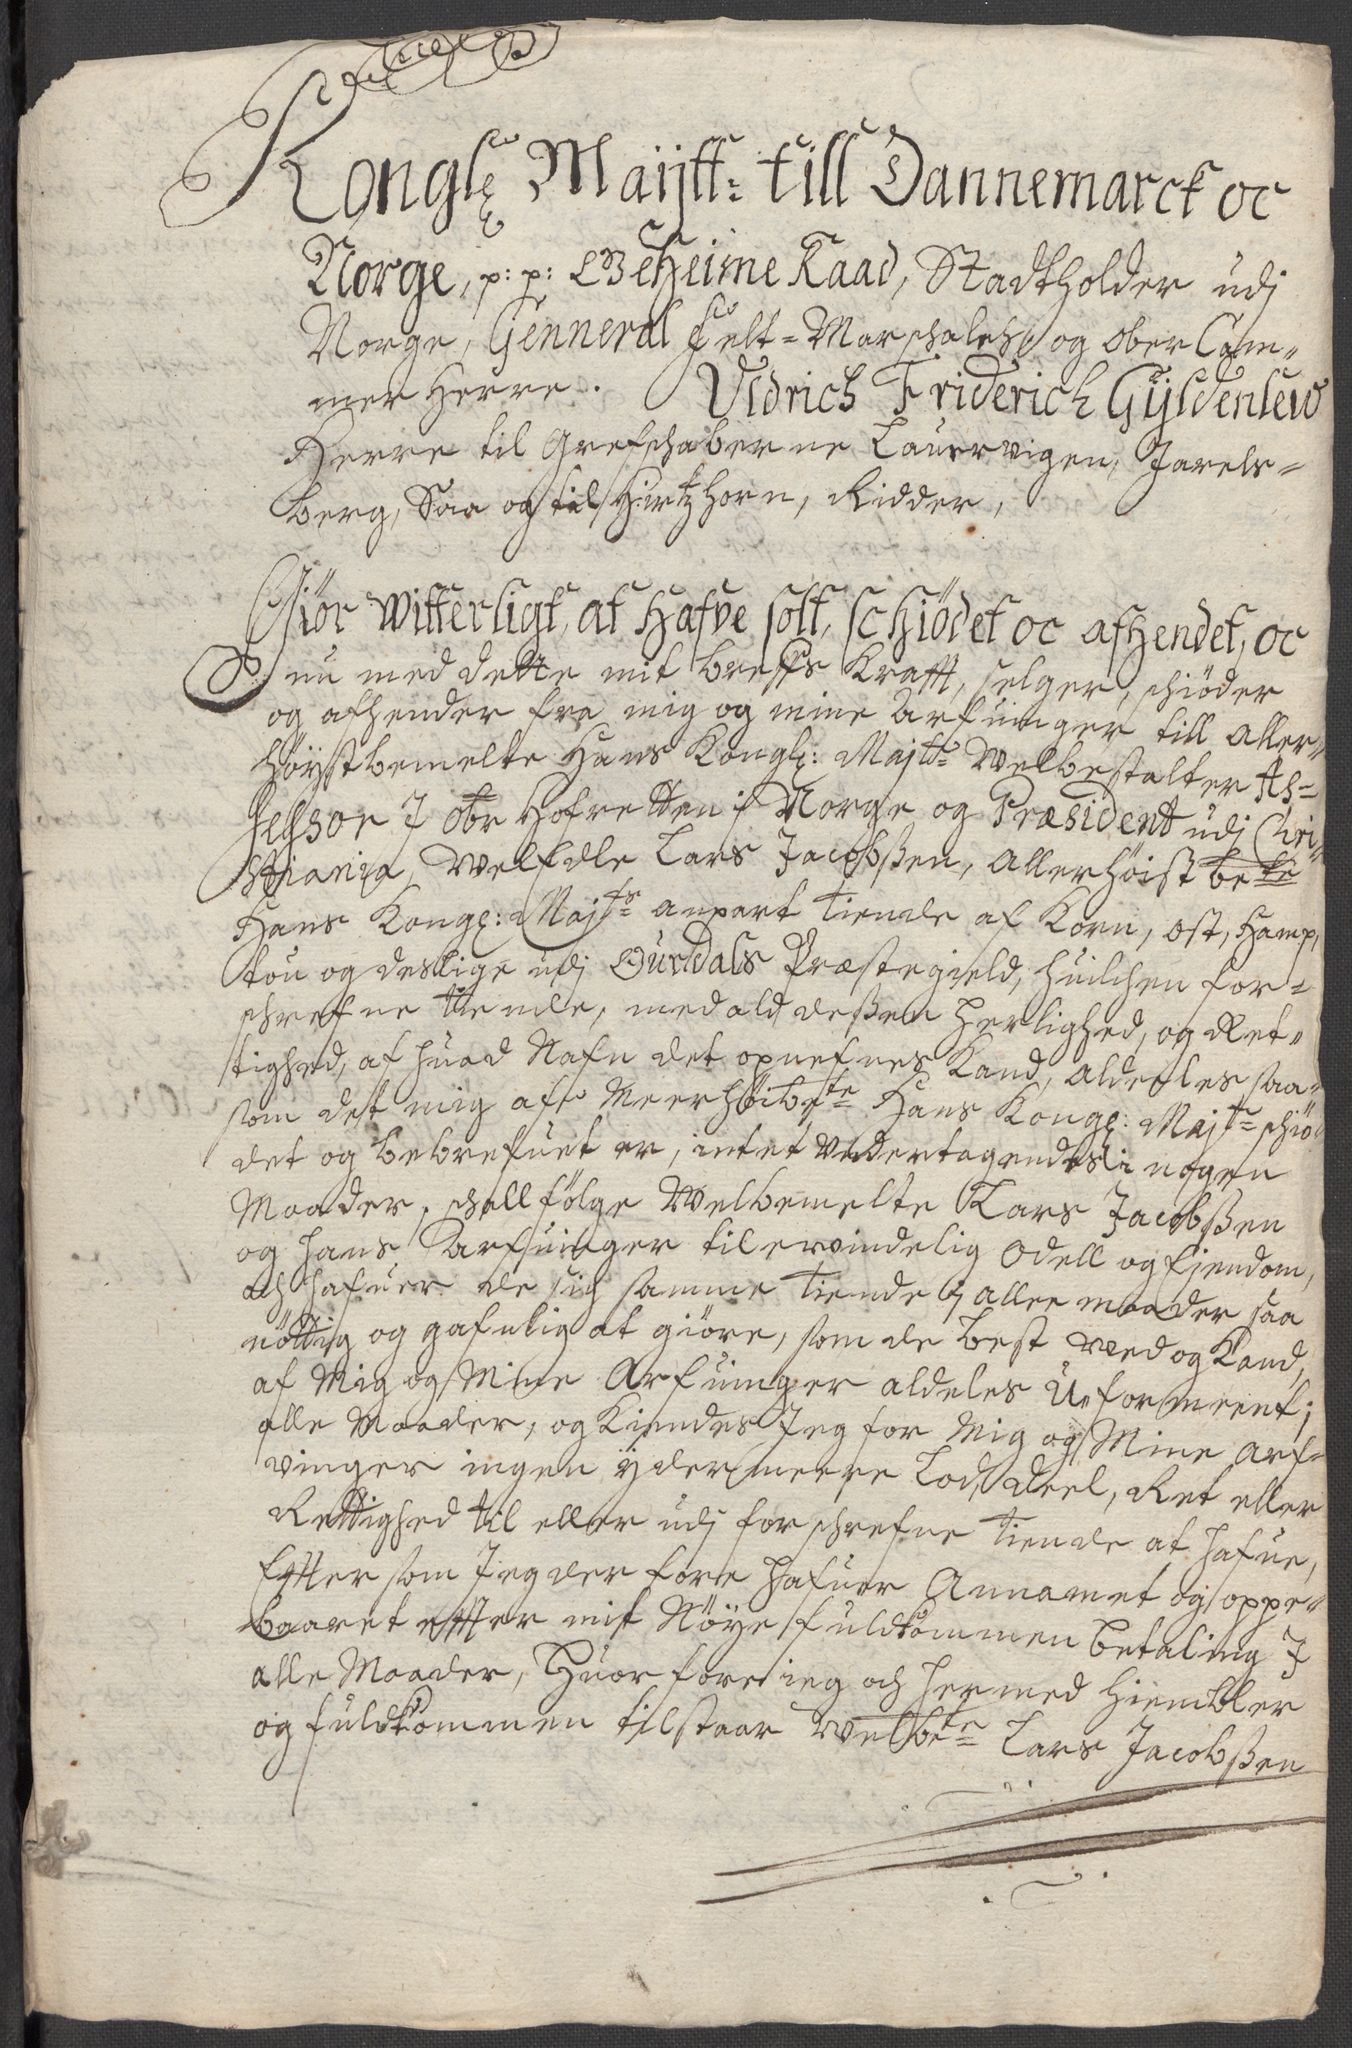 Kongl: Maijtt: till Dannemarck oc
Norge, p: p: Geheime Raad, Stadtholder udj
Norge, Genneral Felt-Marschalch, og Ober Cam-
mer Herre. Uldrich Friderich Gÿldenlew
Herre til Grefschaberne Laurvigen, Jarels-
berg, Saa og til Hirtzhorn, Ridder,
Giör witterligt, at Hafve solt, schiödet oc afhendet, oc
nu med dette mit brefs Krafft, selger, schiöder
og afhender fra mig og mine Arfuinger till aller-
höystbemelte Hans Kongl: Majtts Welbestalter As-
sessor J obr Hofretten i Norge og Præsident udj Chri-
stiania, Welædle Lars Jacobßen, allerhöist bete
Hans Kongl: Majts anpart Tiende af Korn, ost, Hamp,
tou og deslige udj Ourdals Præstegield, huilchen for-
schrefne tiende, med ald deßen Herlighed, og Ret-
tighed, af huad Nafn det opnefnes Kand, aldeles saa-
som det mig aff Meerhöibete Hans Kongl: Majts schiö-
det og bebrefuet er, intet undertagendes i nogen
Maader, schall fölge Welbemelte Lars Jacobßen
og hans Arfuinger til ervindelig Odell og Ejendom,
och hafuer de sig samme Tiende j aller maader saa
nöttig og gafnlig at giöre, som de best ved og Kand,
af Mig og Mine Arfuinger aldeles U-formeent i
alle Maader, og Kiendes Jeg for Mig og Mine Arf-
vinger ingen ÿdermeere Lod, deel, Ret eller
Rettighed til eller udj forschrefne Tiende at hafue,
Efftersom Jeg der fore hafuer Annamet og oppe-
baaret effter mit Nöye fuldkommen betaling J
alle Maader, Huorfore ieg och hermed Hiembler
og fuldkommen tilstaar Welbte Lars Jacobßen